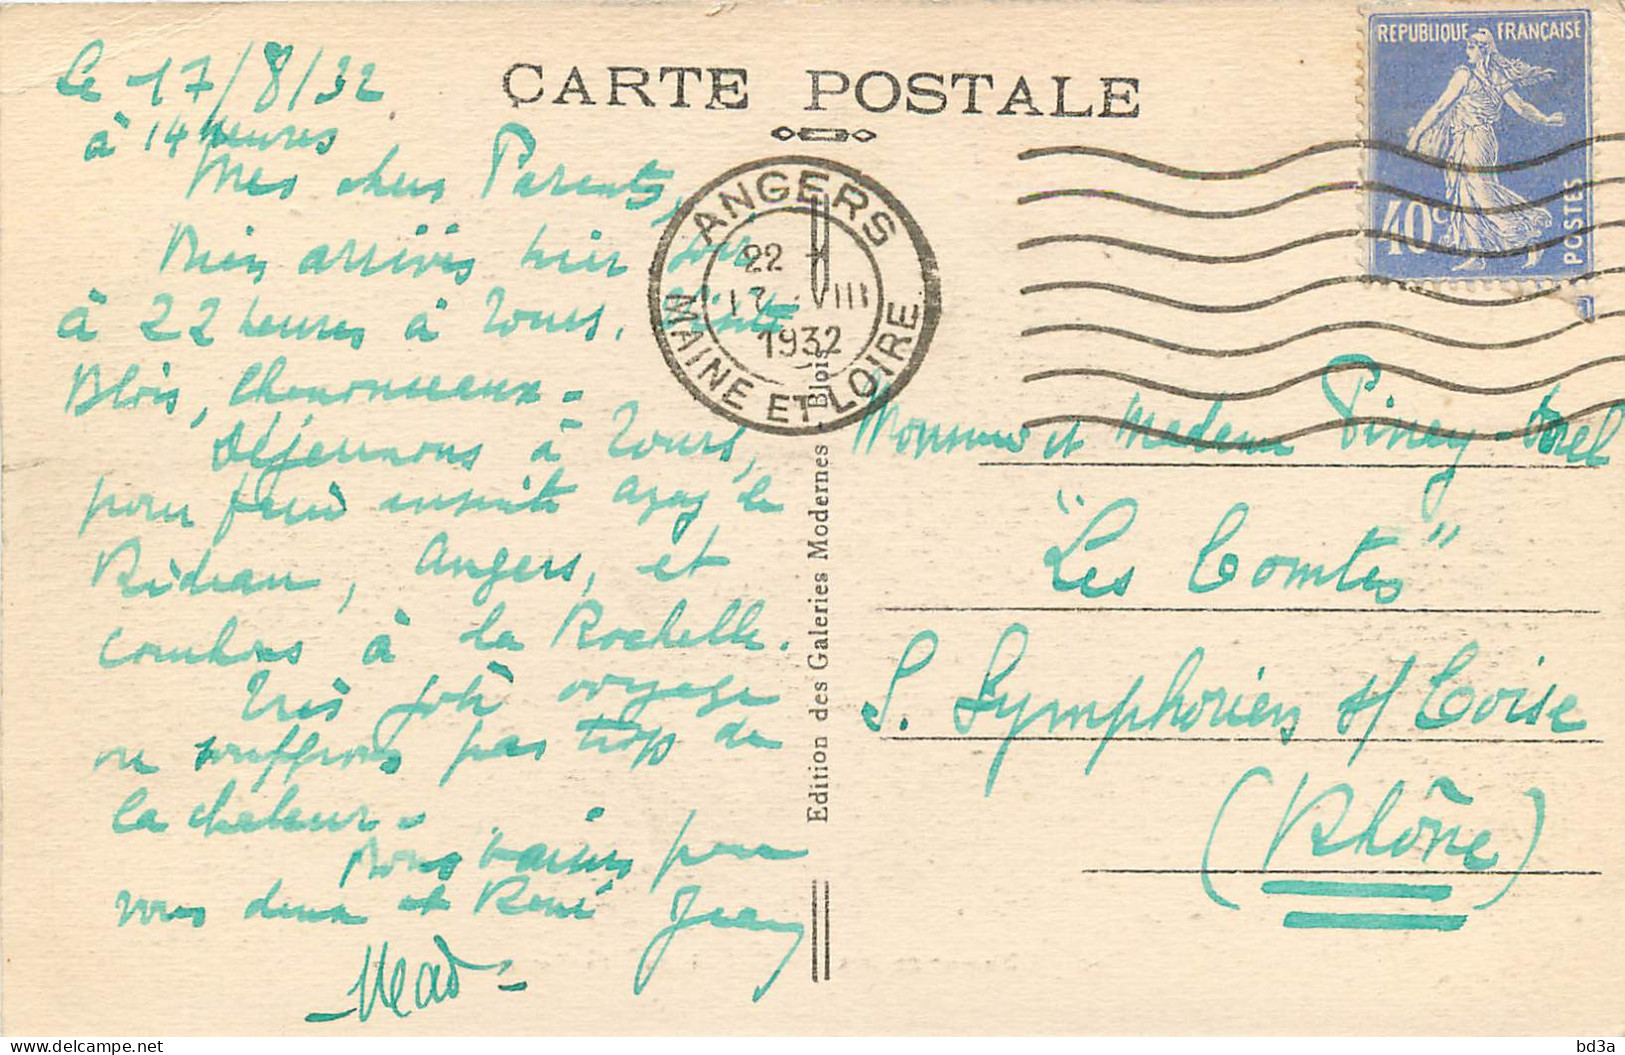 CARTE POSTALE
REPUBLIQUE FRANÇAISE
40c
POSTES
ANGERS
22
17 VIII
1932
MAINE ET LOIRE
Le 17/8/32
à 14 heures
Mes chers Parents,
Bien arrivés hier soir
à 22 heures à Tours. Visité
Blois, Chenonceaux -
Déjeunons à Tours,
pour faire ensuite Azay le
Rideau, Angers, et
couchons à la Rochelle.
Très joli voyage
ne souffrons pas trop de
la chaleur -
Bons baisers pour
vous deux et René Jean
Mad -
Edition des Galeries Modernes - Blois
Monsieur et Madame Piney-
"Les Comtes"
S. Symphorien s/ Coise
(Rhône)
bd3a